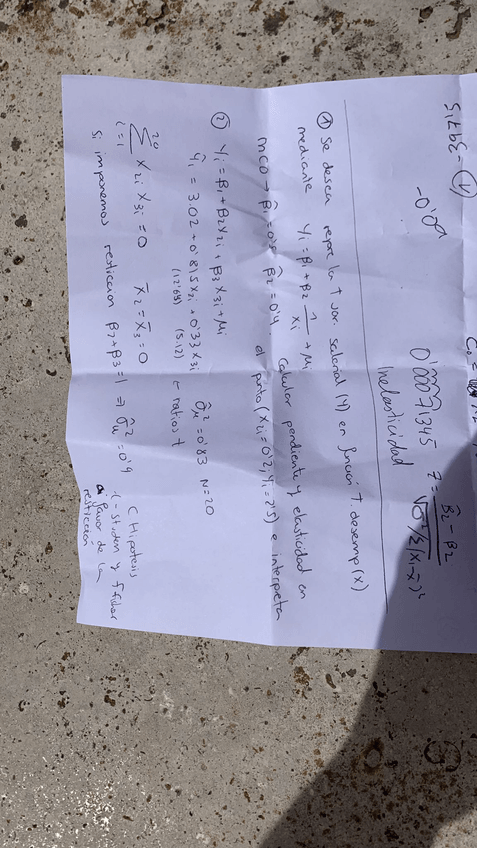 C₀ =
④ - 3g7i5
-0'0
0'00071345 Z = β̂₂ - β₂ / √σ²/Σ(xi-x̄)²
Inelasticidad
① Se desea repre la T var. salarial (Y) en función T. desemp (X)
mediante Yi = β₁ + β₂ 1/Xi + Mi Calcular pendiente y elasticidad en
MCO → β̂₁ = β̂₂ = 0'4 el punto (X2i = 0'2, Yi = 2'5) e interpreten
② Yi = β₁ + β₂X2i + β₃X3i + Mi
Ŷi = 3.02 + 0'815X2i + 0'33X3i σ̂²M = 0'83 N = 20
(12.68) (5.12) ← ratios t
20
Σ X2i X3i = 0 X̄2 = X̄3 = 0
i=1
Si imponemos restricción β₂ + β₃ = 1 ⇒ σ̂²M = 0'9
C Hipotesis
t-studen y F
a favor de la
restricción